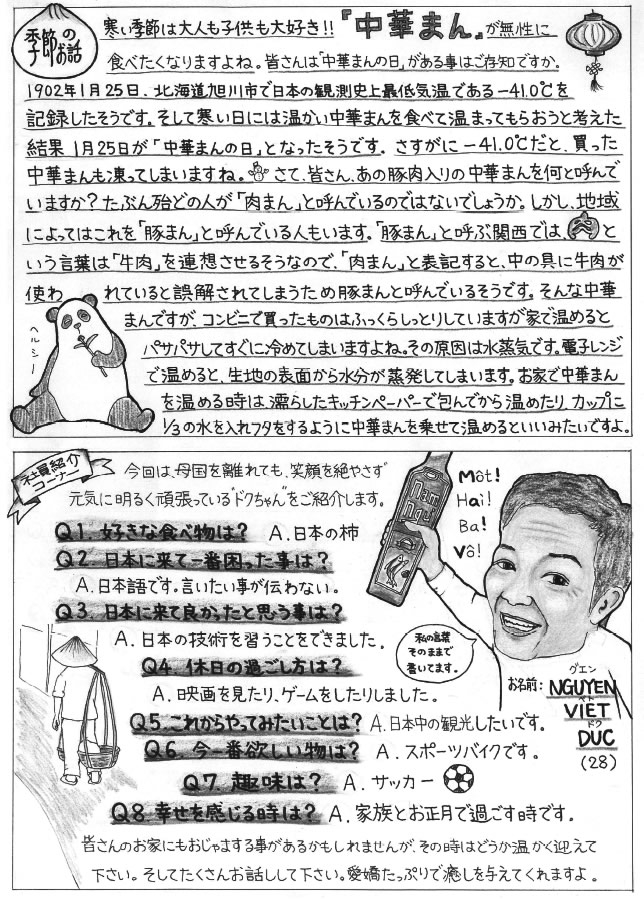 季節のお話
寒い季節は大人も子供も大好き!!『中華まん』が無性に
食べたくなりますよね。皆さんは「中華まんの日」がある事はご存知ですか。
1902年1月25日、北海道旭川市で日本の観測史上最低気温である－41.0℃を
記録したそうです。そして寒い日には温かい中華まんを食べて温まってもらおうと考えた
結果1月25日が「中華まんの日」となったそうです。さすがに－41.0℃だと、買った
中華まんも凍ってしまいますね。さて、皆さん、あの豚肉入りの中華まんを何と呼んで
いますか？たぶん殆どの人が「肉まん」と呼んでいるのではないでしょうか。しかし、地域
によってはこれを「豚まん」と呼んでいる人もいます。「豚まん」と呼ぶ関西では、肉と
いう言葉は「牛肉」を連想させるそうなので、「肉まん」と表記すると、中の具に牛肉が
使われていると誤解されてしまうため豚まんと呼んでいるそうです。そんな中華
まんですが、コンビニで買ったものはふっくらしっとりしていますが家で温めると
パサパサしてすぐに冷めてしまいますよね。その原因は水蒸気です。電子レンジ
で温めると、生地の表面から水分が蒸発してしまいます。お家で中華まん
を温める時は、濡らしたキッチンペーパーで包んでから温めたり、カップに
1/3の水を入れフタをするように中華まんを乗せて温めるといいみたいですよ。
ヘルシー
社員紹介
コーナー
今回は、母国を離れても、笑顔を絶やさず
元気に明るく頑張っている"ドクちゃん"をご紹介します。
Q1. 好きな食べ物は？ A.日本の柿
Q2. 日本に来て一番困った事は？
A.日本語です。言いたい事が伝わない。
Q3. 日本に来て良かったと思う事は？
A. 日本の技術を習うことをできました。
Q4. 休日の過ごし方は？
A. 映画を見たり、ゲームをしたりしました。
Q5. これからやってみたいことは？ A.日本中の観光したいです。
Q6. 今一番欲しい物は？ A. スポーツバイクです。
Q7. 趣味は？ A. サッカー
Q8. 幸せを感じる時は？ A. 家族とお正月で過ごす時です。
Một!
Hai!
Ba!
Vô!
私の言葉
そのままで
書いてます。
お名前:
グエン
NGUYEN
ベト
VIET
ドク
DUC
(28)
皆さんのお家にもおじゃまする事があるかもしれませんが、その時はどうか温かく迎えて
下さい。そしてたくさんお話しして下さい。愛嬌たっぷりで癒しを与えてくれますよ。